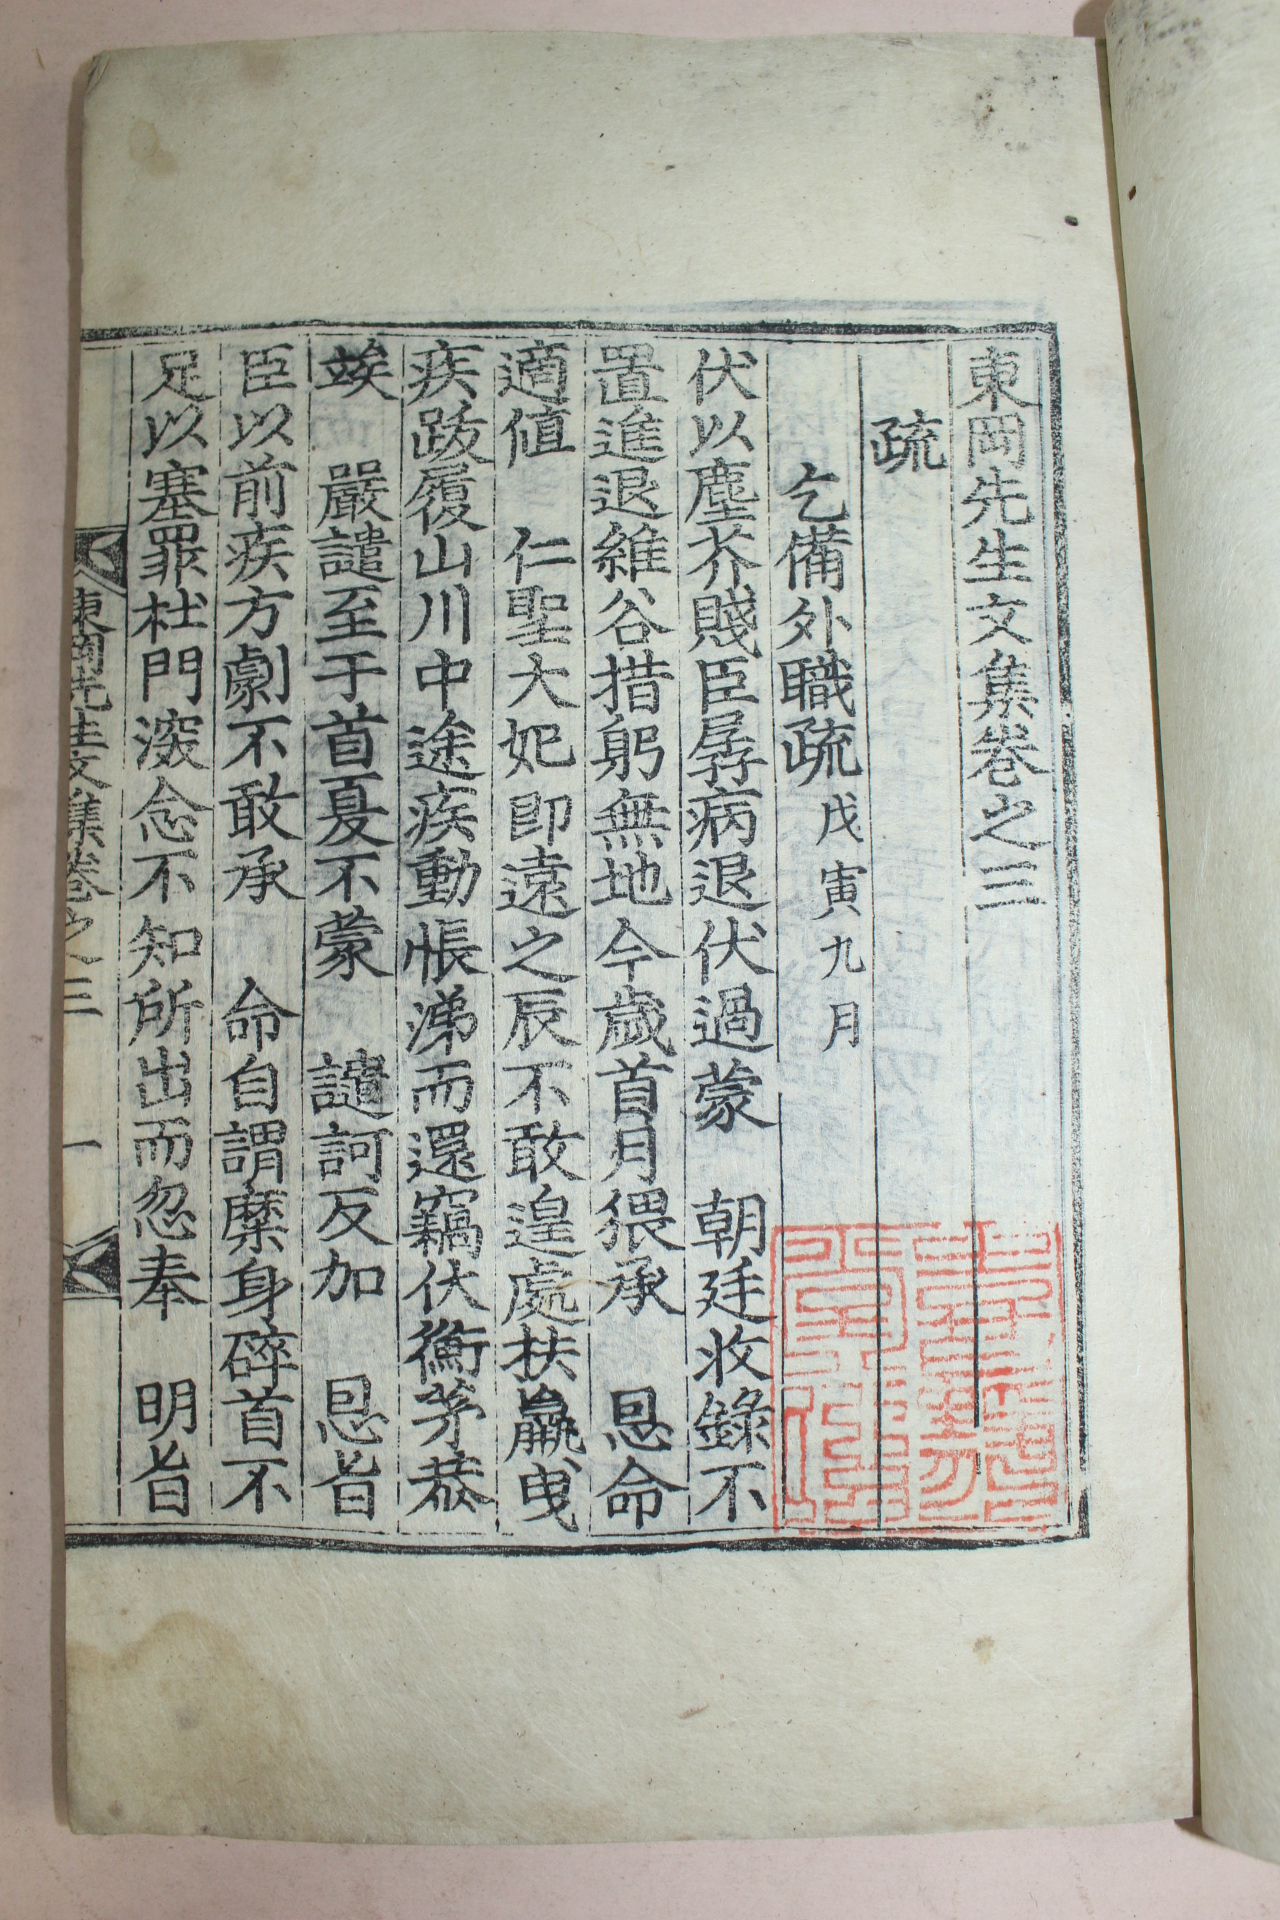 東岡先生文集卷之三
疏
乞備外職疏 戊寅九月
伏以塵芥賤臣孱病退伏過蒙 朝廷收錄不
置進退維谷措躬無地今歲首月猥承 恩命
適值 仁聖大妃卽遠之辰不敢遑處扶羸曳
疾跋履山川中途疾動悵涕而還竊伏衡茅恭
竢 嚴譴至于首夏不蒙 譴訶反加 恩旨
臣以前疾方劇不敢承 命自謂糜身碎首不
足以塞罪杜門深念不知所出而忽奉 明旨
東岡先生文集卷之三 一